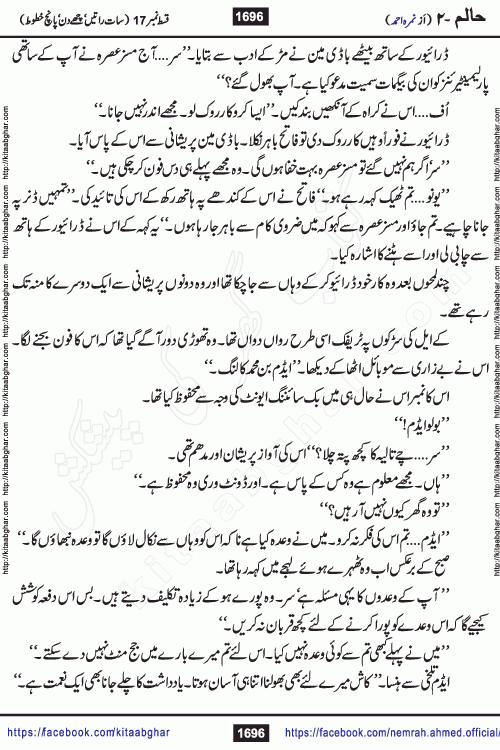 حالم ۔۲ (از نمرہ احمد) 1696 قسط نمبر 17 (سات راتیں' چھے دن' پانچ خطوط)
ڈرائیور کے ساتھ بیٹھے باڈی مین نے مڑ کے ادب سے بتایا۔ ’’سر.... آج مسز عصرہ نے آپ کے ساتھی
پارلیمنٹیرینز کو ان کی بیگمات سمیت مدعو کیا ہے۔ آپ بھول گئے؟‘‘
اُف.... اس نے کراہ کے آنکھیں بند کیں۔ ’’ایسا کرو کار روک لو۔ مجھے اندر نہیں جانا۔‘‘
ڈرائیور نے فوراً وہیں کار روک دی تو فاتح باہر نکلا۔ باڈی مین پریشانی سے اس کے پاس آیا۔
’’سر' اگر ہم نہیں گئے تو مسز عصرہ بہت خفا ہوں گی۔ وہ مجھے پہلے ہی دس فون کر چکی ہیں۔‘‘
’’یونو.... تم ٹھیک کہہ رہے ہو۔‘‘ فاتح نے اس کے کندھے پہ ہاتھ رکھ کے اس کی تائید کی۔ ’’تمہیں ڈنر پہ
جانا چاہیے۔ تم جاؤ اور مسز عصرہ سے کہو کہ میں ضروری کام سے باہر جا رہا ہوں۔‘‘ یہ کہہ کے اس نے ڈرائیور کے ہاتھ
سے چابی لی اور اسے ہٹنے کا اشارہ کیا۔
چند لمحوں بعد وہ کار خود ڈرائیو کر کے وہاں سے جا چکا تھا اور وہ دونوں پریشانی سے ایک دوسرے کا منہ تک
رہے تھے۔
کے ایل کی سڑکوں پہ ٹریفک اسی طرح رواں دواں تھا۔ وہ تھوڑی دور آگے گیا تھا کہ اس کا فون بجنے لگا۔
اس نے بے زاری سے موبائل اٹھا کے دیکھا۔ ’’ایڈم بن محمد کالنگ۔‘‘
اس کا نمبر اس نے حال ہی میں بک سائننگ ایونٹ کی وجہ سے محفوظ کیا تھا۔
’’بولو ایڈم!‘‘
’’سر.... چے تالیہ کا کچھ پتہ چلا؟‘‘ اس کی آواز پریشان اور مدھم تھی۔
’’ہاں۔ مجھے معلوم ہے وہ کس کے پاس ہے۔ اور ڈونٹ وری وہ محفوظ ہے۔‘‘
’’تو وہ گھر کیوں نہیں آ رہیں؟‘‘
’’ایڈم.... تم اس کی فکر نہ کرو۔ میں نے وعدہ کیا ہے نا کہ اس کو وہاں سے نکال لاؤں گا تو وعدہ نبھاؤں گا۔‘‘
صبح کے برعکس اب وہ ٹھہرے ہوئے لہجے میں کہہ رہا تھا۔
’’آپ کے وعدوں کا یہی مسئلہ ہے' سر۔ وہ پورے ہو کے زیادہ تکلیف دیتے ہیں۔ بس اس دفعہ کوشش
کیجیے گا کہ اس وعدے کو پورا کرنے کے لئے کچھ قربان نہ کریں۔‘‘
’’میں نے پہلے کبھی تم سے کوئی وعدہ نہیں کیا۔ اس لئے تم میرے بارے میں جج منٹ نہیں دے سکتے۔‘‘
ایڈم تلخی سے ہنسا۔ ’’کاش میرے لئے بھی بھولنا اتنا ہی آسان ہوتا۔ یادداشت کا چلے جانا بھی ایک نعمت ہے۔‘‘
https://facebook.com/kitaabghar 1696 https://facebook.com/nemrah.ahmed.official/
http://kitaabghar.com